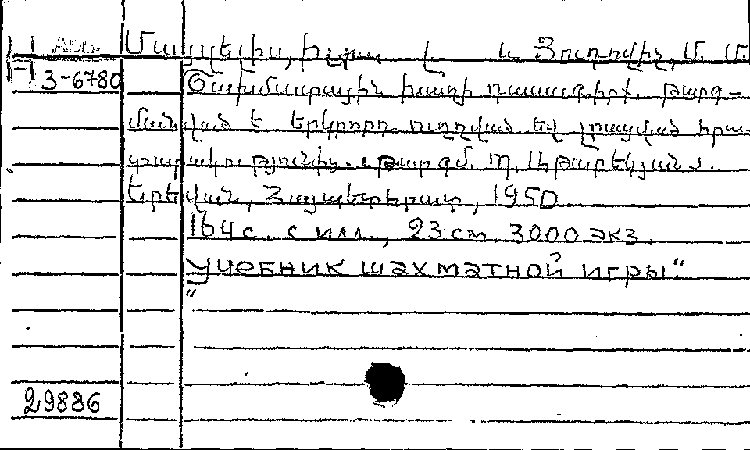 Մայզելիս, Իլյա Լ. և Յուդովիչ, Մ. Մ.
3-6780 Շախմատային խաղի դասագիրք. Թարգ-
մանված է երկրորդ ուղղված եվ լրացված հրա
տարակությունից. Թարգմ.
Երեվան, Հայպետհրատ, 1950
164 с. с илл., 23 см 3000 экз.
"Учебник шахматной игры"
29886